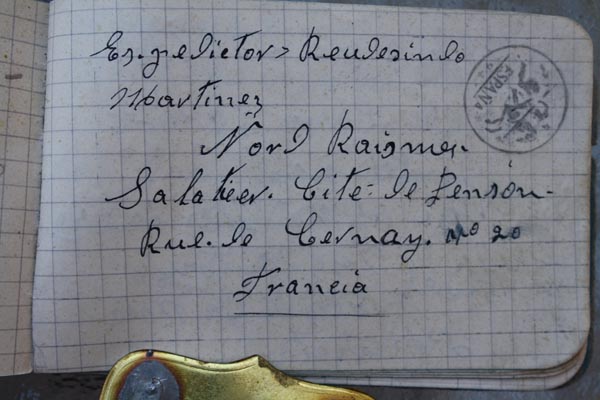 Espedictor > Reudesindo
Martinez
Nord Raismes.
Sabatier. Cite de Pensón.
Rue. de Cernay. Nº 20
Francia
ESPAÑA